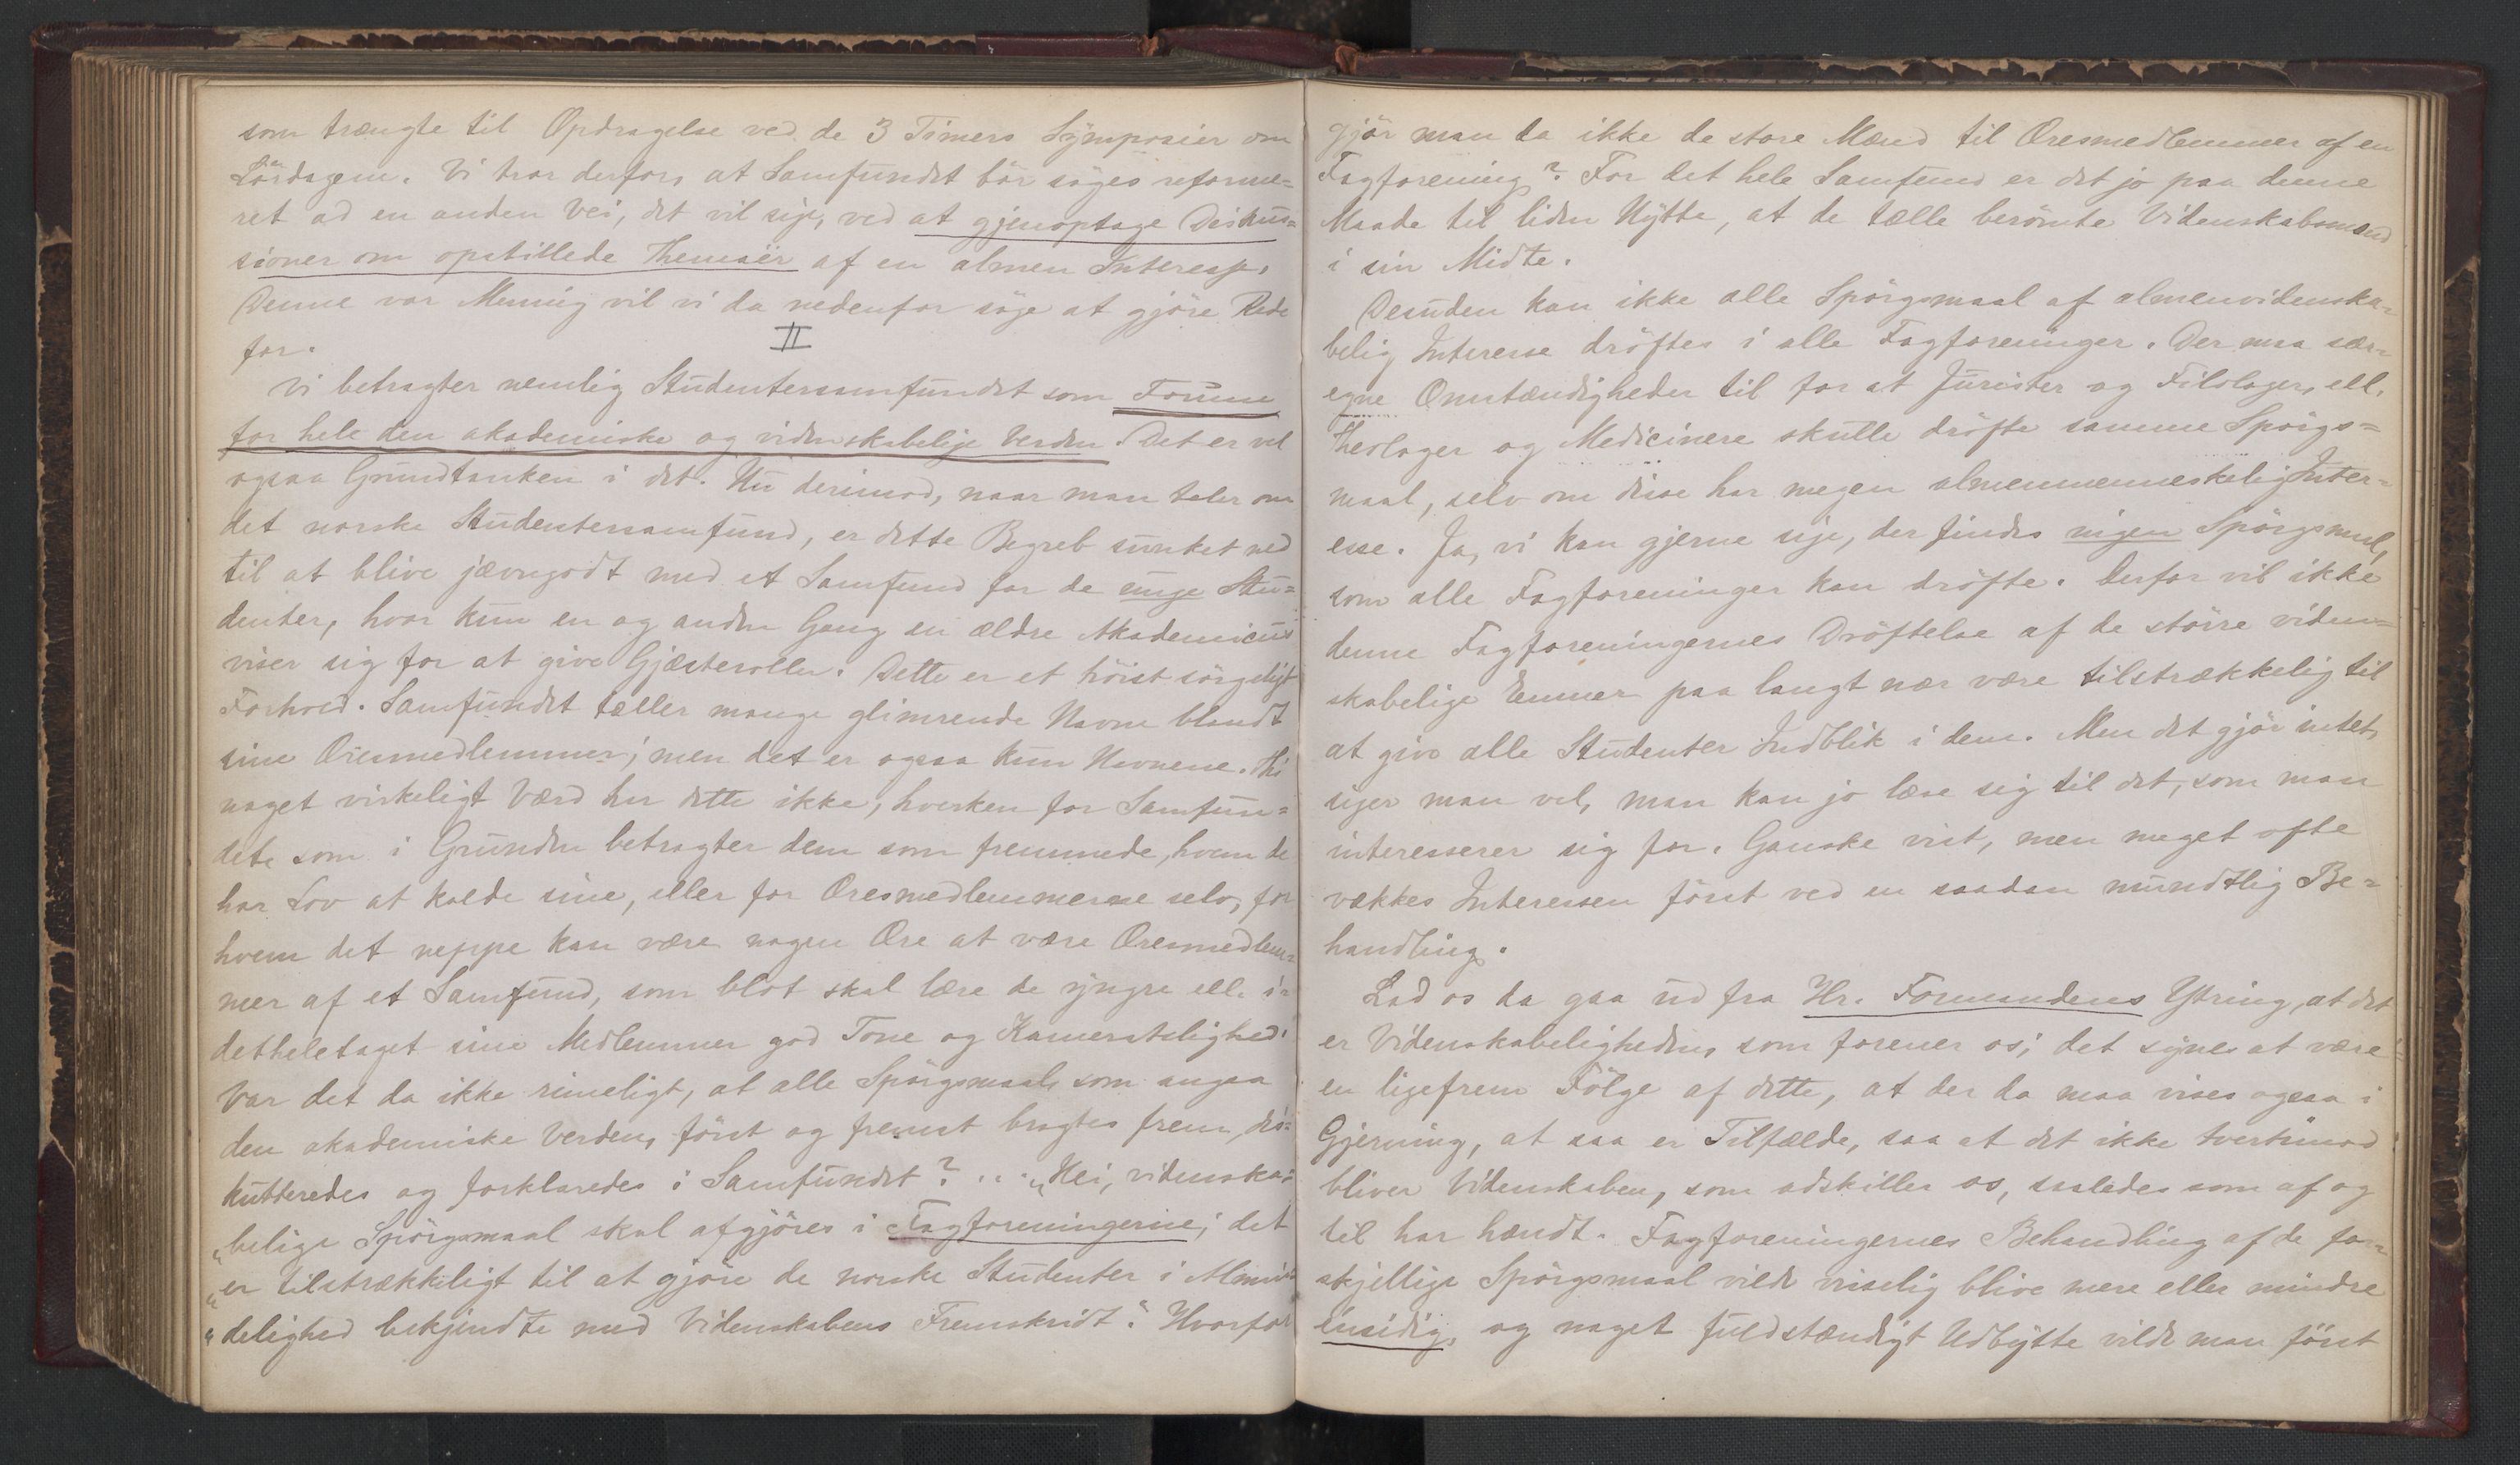 som trængte til Opdragelse ved de 3 Timers Symposier om
Lördagene. Vi tror derfor, at Samfundet bör söges reforme=
ret ad en anden Vei, det vil sige, ved at gjenoptage Diskus=
sioner om opstillede Themaër af en almen Interesse.
Denne vor Mening vil vi da nedenfor söge at gjöre Rede
for.
II
Vi betragter nemlig Studentersamfundet som Forum
for hele den akademiske og videnskabelige Verden. Det er vel
ogsaa Grundtanken i det. Nu derimod, naar man taler om
det norske Studentersamfund, er dette Begreb sunket ned
til at blive jævngodt med et Samfund for de unge Stu=
denter, hvor kun en og anden Gang en ældre Akademicus
viser sig for at give Gjæsteroller. Dette er et höist sörgeligt
Forhold. Samfundet tæller mange glimrende Navne blandt
sine Æresmedlemmer; men det er ogsaa kun Navnene. Thi
noget virkeligt Værd har dette ikke, hverken for Samfun=
det, som i Grunden betragter dem som fremmede, hvem de
har Lov at kalde sine, eller for Æresmedlemmerne selv, for
hvem det neppe kan være nogen Ære at være Æresmedlem=
mer af et Samfund, som blot skal lære de yngre ell. i=
detheletaget sine Medlemmer god Tone og Kameratslighed.
Var det da ikke rimeligt, at alle Spörgsmaal, som angaa
den akademiske Verden, först og fremst bragtes frem, dis=
kutteredes og forklaredes i Samfundet? ... „Nei, videnska=
„belige Spörgsmaal skal afgjöres i Fagforeningerne; det
„er tilstrækkeligt til at gjöre de norske Studenter i Almin=
„delighed bekjendte med Videnskabens Fremskridt". Hvorfor
gjör man da ikke de store Mænd til Æresmedlemmer af en
Fagforening? For det hele Samfund er det jo paa denne
Maade til liden Nytte, at de tælle berömte Videnskabsmænd
i sin Midte.
Desuden kan ikke alle Spörgsmaal af almenvidenska=
belig Interesse dröftes i alle Fagforeninger. Der maa sær=
egne Omstændigheder til for at Jurister og Filologer, ell.
Theologer og Medicinere skulle dröfte samme Spörgs=
maal, selv om disse har megen almenmenneskelig Inter=
esse. Ja, vi kan gjerne sige, der findes ingen Spörgsmaal,
som alle Fagforeninger kan dröfte. Derfor vil ikke
denne Fagforeningernes Dröftelse af de större viden=
skabelige Emner paa langt nær være tilstrækkelig til
at give alle Studenter Indblik i dem. Men det gjör intet,
siger man vel, man kan jo læse sig til det, som man
interesserer sig for. Ganske vist, men meget ofte
vækkes Interessen först ved en saadan mundtlig Be=
handling.
Lad os da gaa ud fra Hr. Formandens Ytring, at det
er Videnskabeligheden, som forener os; det synes at være
en ligefrem Fölge af dette, at der da maa vises ogsaa i
Gjerning, at saa er Tilfælde, saa at det ikke tvertimod
bliver Videnskaben, som adskiller os, saaledes som af og
til har hændt. Fagforeningernes Behandling af de for=
skjellige Spörgsmaal vilde visselig blive mere eller mindre
ensidig, og noget fuldstændigt Udbytte vilde man först